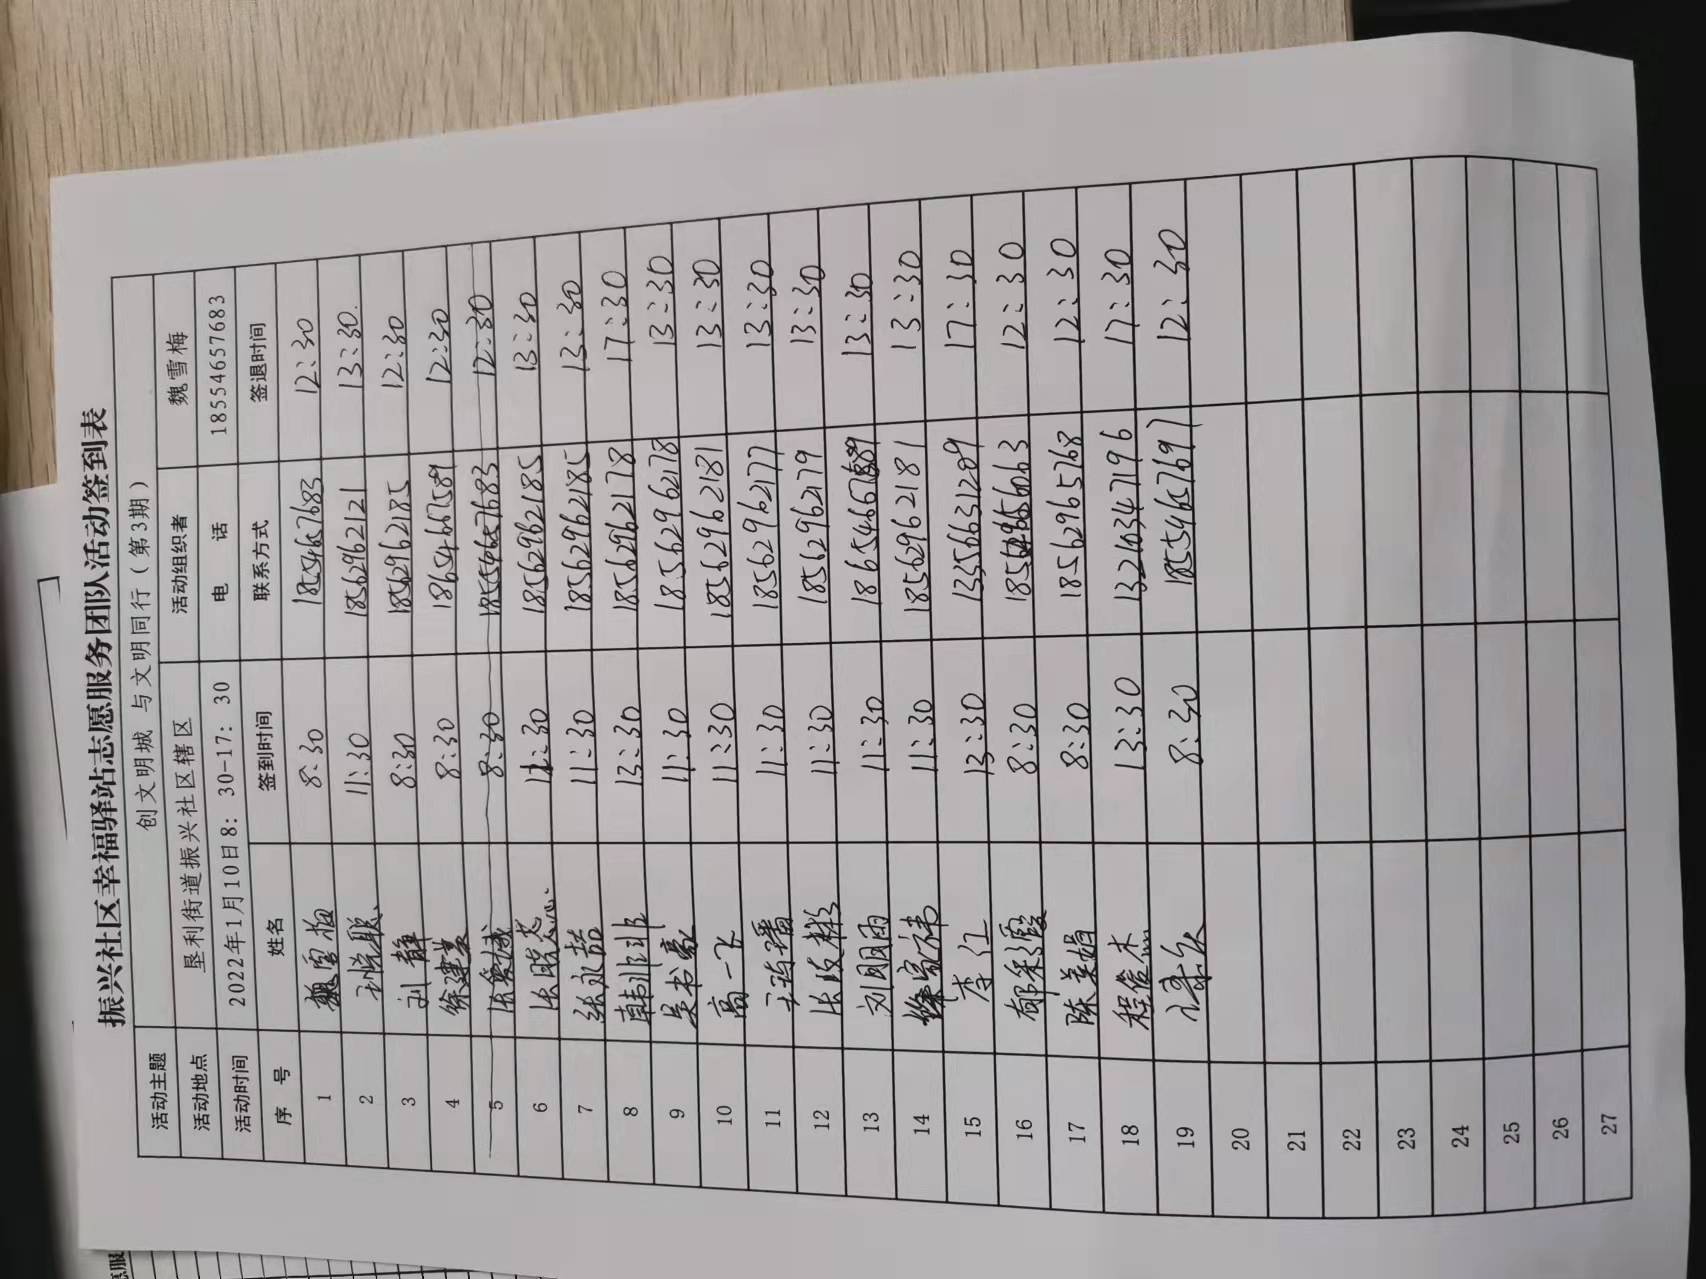 振兴社区幸福驿站志愿服务团队活动签到表
活动主题 创文明城 与文明同行（第3期）
活动地点 垦利街道振兴社区辖区 活动组织者 魏雪梅
活动时间 2022年1月10日8：30-17：30 电 话 18554657683
序 号 姓名 签到时间 联系方式 签退时间
1 魏雪梅 8:30 18554657683 12:30
2 11:30 18562962121 13:30
3 刘静 8:30 18562962185 12:30
4 徐建美 8:30 18654666589 12:30
5 8:30 18554657683 12:30
6 张晓态 11:30 18562962185 13:30
7 张永喆 11:30 18562962185 13:30
8 韩非非 13:30 18562962178 17:30
9 吴书豪 11:30 18562962178 13:30
10 高一飞 11:30 18562962181 13:30
11 11:30 18562962177 13:30
12 11:30 1856296279 13:30
13 刘明雨 11:30 13:30
14 徐家祎 11:30 18562962181 13:30
15 李红 13:30 13356631289 17:30
16 郁彩霞 8:30 12:30
17 陈美娟 8:30 18562965768 12:30
18 程信杰 13:30 13210347196 17:30
19 8:30 18554657697 12:30
20
21
22
23
24
25
26
27
愿服